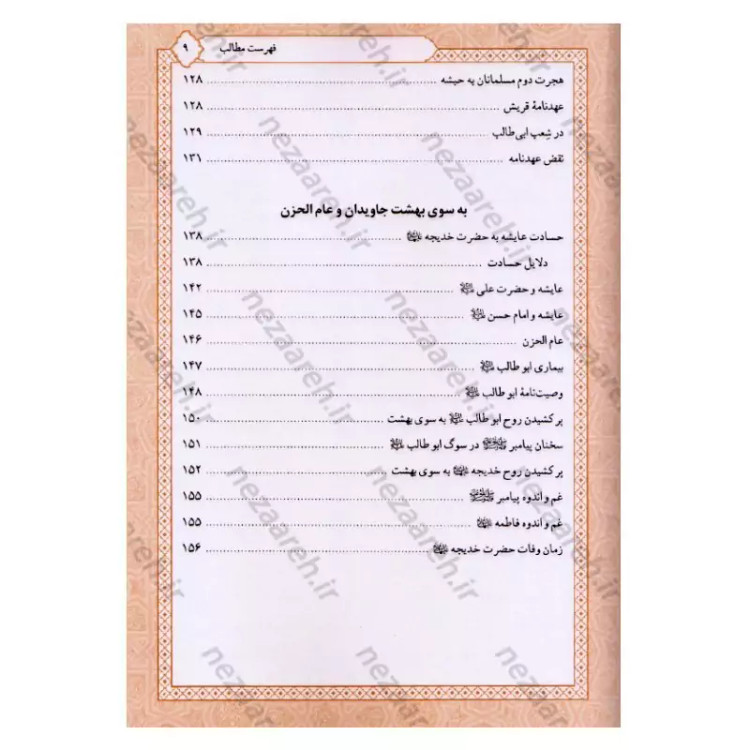 فهرست مطالب ۹
هجرت دوم مسلمانان به حبشه ۱۲۸
عهدنامهٔ قریش ۱۲۸
در شِعب ابی‌طالب ۱۲۹
نقض عهدنامه ۱۳۱
به سوی بهشت جاویدان و عام الحزن
حسادت عایشه به حضرت خدیجه ۱۳۸
دلایل حسادت ۱۳۸
عایشه و حضرت علی ۱۴۲
عایشه و امام حسن ۱۴۵
عام الحزن ۱۴۶
بیماری ابو طالب ۱۴۷
وصیت‌نامهٔ ابو طالب ۱۴۸
پر کشیدن روح ابو طالب به سوی بهشت ۱۵۰
سخنان پیامبر در سوگ ابو طالب ۱۵۱
پر کشیدن روح خدیجه به سوی بهشت ۱۵۲
غم و اندوه پیامبر ۱۵۵
غم و اندوه فاطمه ۱۵۵
زمان وفات حضرت خدیجه ۱۵۶
nezaareh.ir